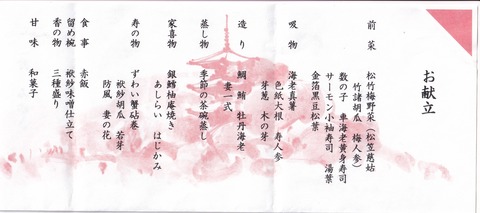 お献立
前菜 松竹梅野菜(松笠慈姑
竹諸胡瓜 梅人参)
数の子 車海老黄身寿司
サーモン小袖寿司 湯葉
金箔黒豆松葉
吸物 海老真薯
色紙大根 寿人参
芽葱 木の芽
造り 鯛 鮪 牡丹海老
妻一式
蒸し物 季節の茶碗蒸し
家喜物 銀鱈柚庵焼き
あしらい はじかみ
寿の物 ずわい蟹砧巻
袱紗胡瓜 若芽
防風 妻の花
食事 赤飯
留め椀 袱紗味噌仕立て
香の物 三種盛り
甘味 和菓子